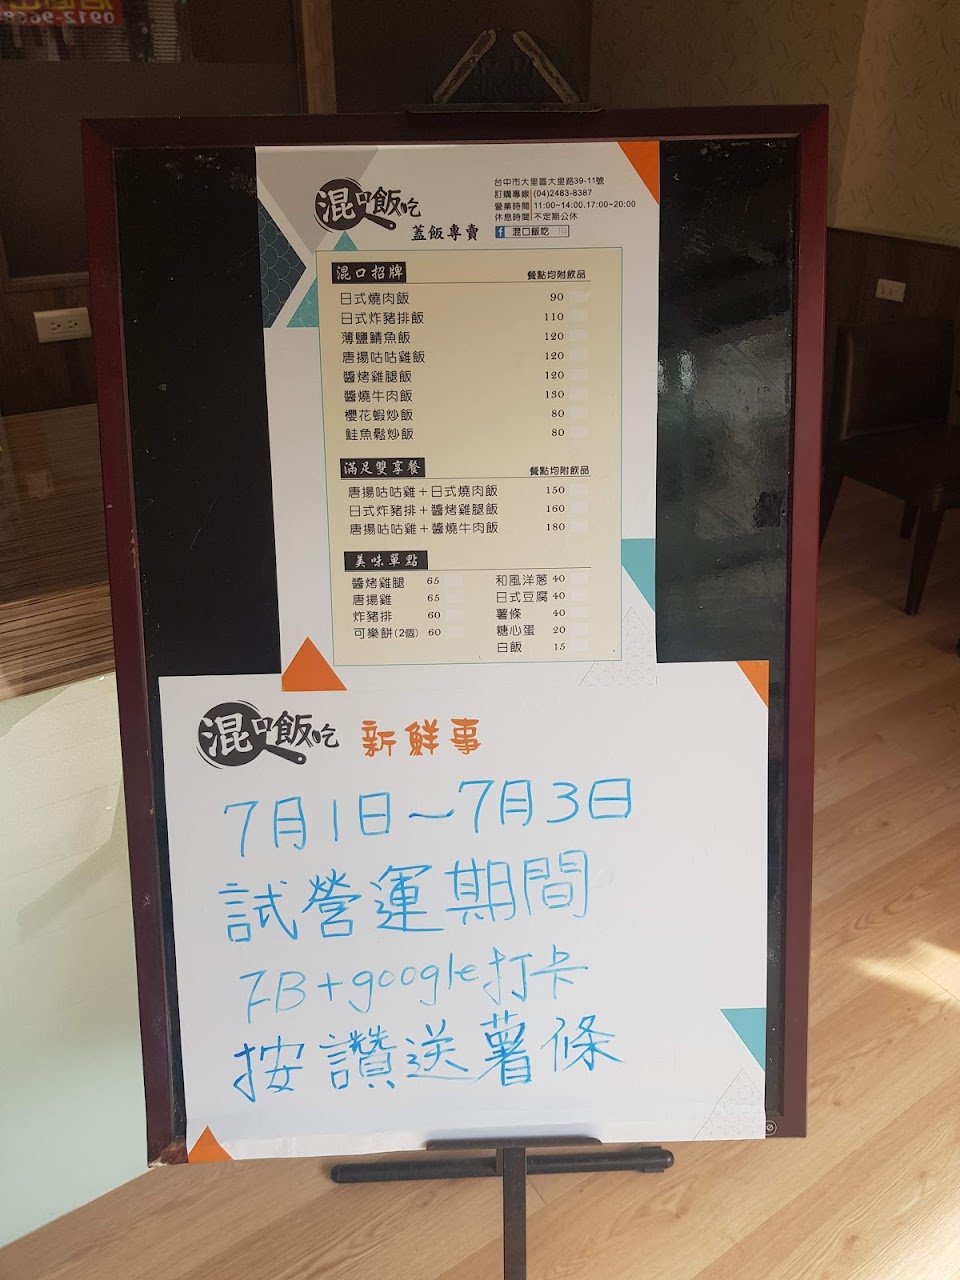 0912-968
混口飯吃
蓋飯專賣
台中市大里區大里路39-11號
訂購專線 (04)2483-8387
營業時間 11:00~14:00.17:00~20:00
休息時間 不定期公休
f 混口飯吃
混口招牌 餐點均附飲品
日式燒肉飯 90
日式炸豬排飯 110
薄鹽鯖魚飯 120
唐揚咕咕雞飯 120
醬烤雞腿飯 120
醬燒牛肉飯 130
櫻花蝦炒飯 80
鮭魚鬆炒飯 80
滿足雙享餐 餐點均附飲品
唐揚咕咕雞+日式燒肉飯 150
日式炸豬排+醬烤雞腿飯 160
唐揚咕咕雞+醬燒牛肉飯 180
美味單點
醬烤雞腿 65
唐揚雞 65
炸豬排 60
可樂餅(2個) 60
和風洋蔥 40
日式豆腐 40
薯條 40
糖心蛋 20
白飯 15
混口飯吃 新鮮事
7月1日~7月3日
試營運期間
FB+google打卡
按讚送薯條